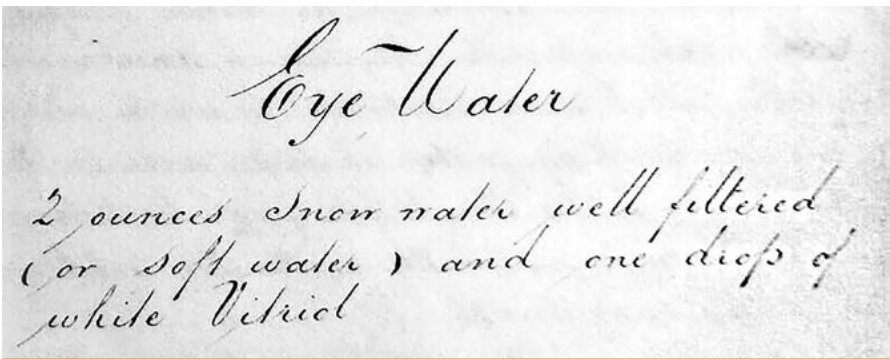 Eye Water
2 ounces Snow water well filtered
(or soft water) and one drop of
white Vitriol